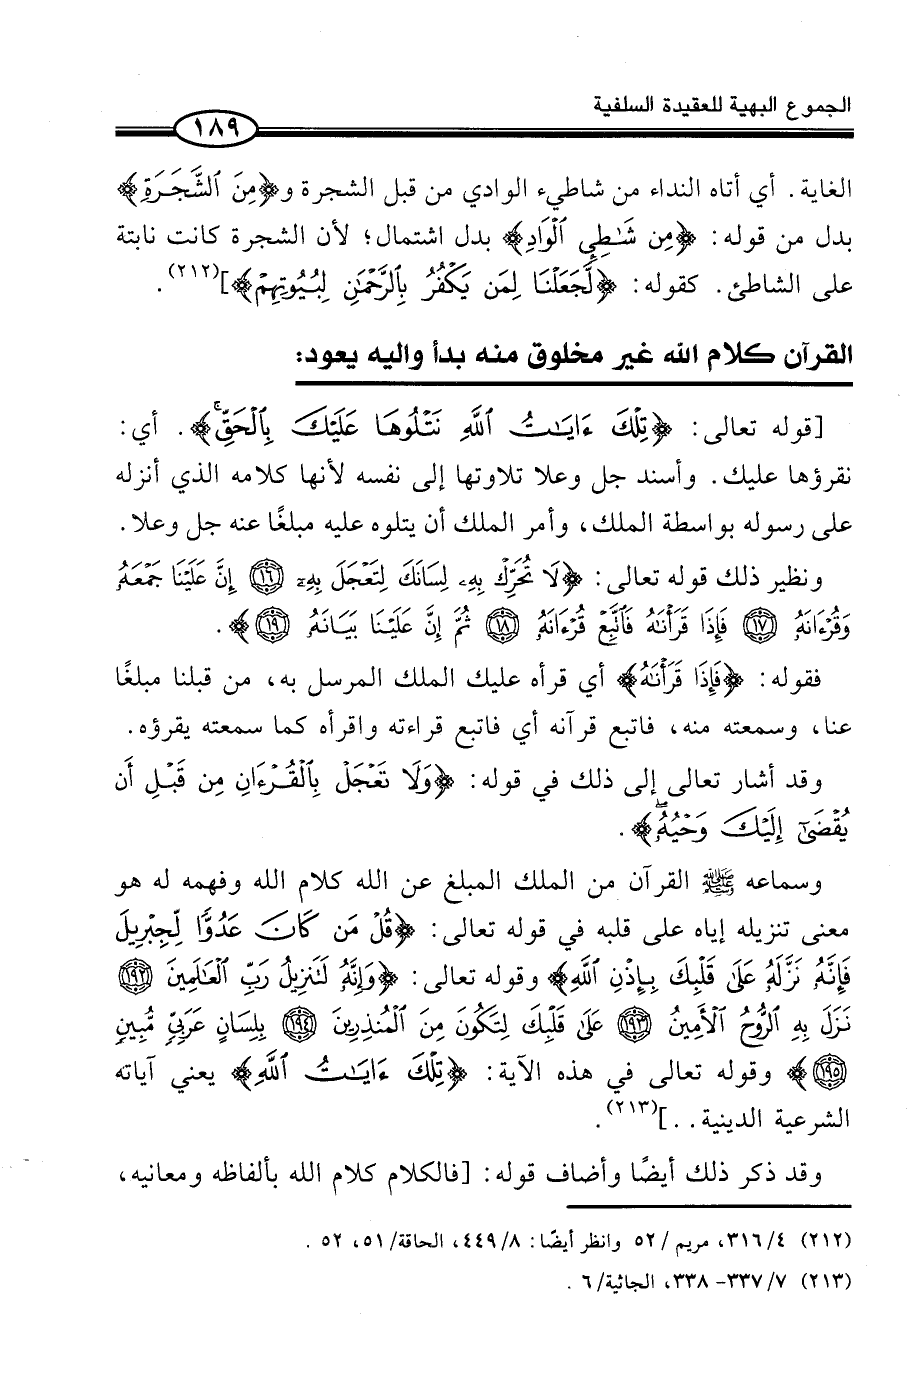 الجموع البهية للعقيدة السلفية
١٨٩
الغاية. أي أتاه النداء من شاطيء الوادي من قبل الشجرة و﴿مِنَ ٱلشَّجَرَةِ﴾
بدل من قوله: ﴿مِن شَٰطِيِٕ ٱلْوَادِ﴾ بدل اشتمال؛ لأن الشجرة كانت نابتة
على الشاطئ. كقوله: ﴿لَّجَعَلْنَا لِمَن يَكْفُرُ بِٱلرَّحْمَٰنِ لِبُيُوتِهِمْ﴾](٢١٢).
القرآن كلام الله غير مخلوق منه بدأ واليه يعود:
[قوله تعالى: ﴿تِلْكَ ءَايَٰتُ ٱللَّهِ نَتْلُوهَا عَلَيْكَ بِٱلْحَقِّۚ﴾. أي:
نقرؤها عليك. وأسند جل وعلا تلاوتها إلى نفسه لأنها كلامه الذي أنزله
على رسوله بواسطة الملك، وأمر الملك أن يتلوه عليه مبلغًا عنه جل وعلا.
ونظير ذلك قوله تعالى: ﴿لَا تُحَرِّكْ بِهِۦ لِسَانَكَ لِتَعْجَلَ بِهِۦٓ ١٦ إِنَّ عَلَيْنَا جَمْعَهُۥ
وَقُرْءَانَهُۥ ١٧ فَإِذَا قَرَأْنَٰهُ فَٱتَّبِعْ قُرْءَانَهُۥ ١٨ ثُمَّ إِنَّ عَلَيْنَا بَيَانَهُۥ ١٩﴾.
فقوله: ﴿فَإِذَا قَرَأْنَٰهُ﴾ أي قرأه عليك الملك المرسل به، من قبلنا مبلغًا
عنا، وسمعته منه، فاتبع قرآنه أي فاتبع قراءته واقرأه كما سمعته يقرؤه.
وقد أشار تعالى إلى ذلك في قوله: ﴿وَلَا تَعْجَلْ بِٱلْقُرْءَانِ مِن قَبْلِ أَن
يُقْضَىٰٓ إِلَيْكَ وَحْيُهُۥۖ﴾.
وسماعه ﷺ القرآن من الملك المبلغ عن الله كلام الله وفهمه له هو
معنى تنزيله إياه على قلبه في قوله تعالى: ﴿قُلْ مَن كَانَ عَدُوًّا لِّجِبْرِيلَ
فَإِنَّهُۥ نَزَّلَهُۥ عَلَىٰ قَلْبِكَ بِإِذْنِ ٱللَّهِ﴾ وقوله تعالى: ﴿وَإِنَّهُۥ لَتَنزِيلُ رَبِّ ٱلْعَٰلَمِينَ ١٩٢
نَزَلَ بِهِ ٱلرُّوحُ ٱلْأَمِينُ ١٩٣ عَلَىٰ قَلْبِكَ لِتَكُونَ مِنَ ٱلْمُنذِرِينَ ١٩٤ بِلِسَانٍ عَرَبِيٍّ مُّبِينٍ
١٩٥﴾ وقوله تعالى في هذه الآية: ﴿تِلْكَ ءَايَٰتُ ٱللَّهِ﴾ يعني آياته
الشرعية الدينية..](٢١٣).
وقد ذكر ذلك أيضًا وأضاف قوله: [فالكلام كلام الله بألفاظه ومعانيه،
(٢١٢) ٣١٦/٤، مريم/ ٥٢ وانظر أيضًا: ٤٤٩/٨، الحاقة/ ٥١، ٥٢ .
(٢١٣) ٣٣٧/٧- ٣٣٨، الجاثية/ ٦ .